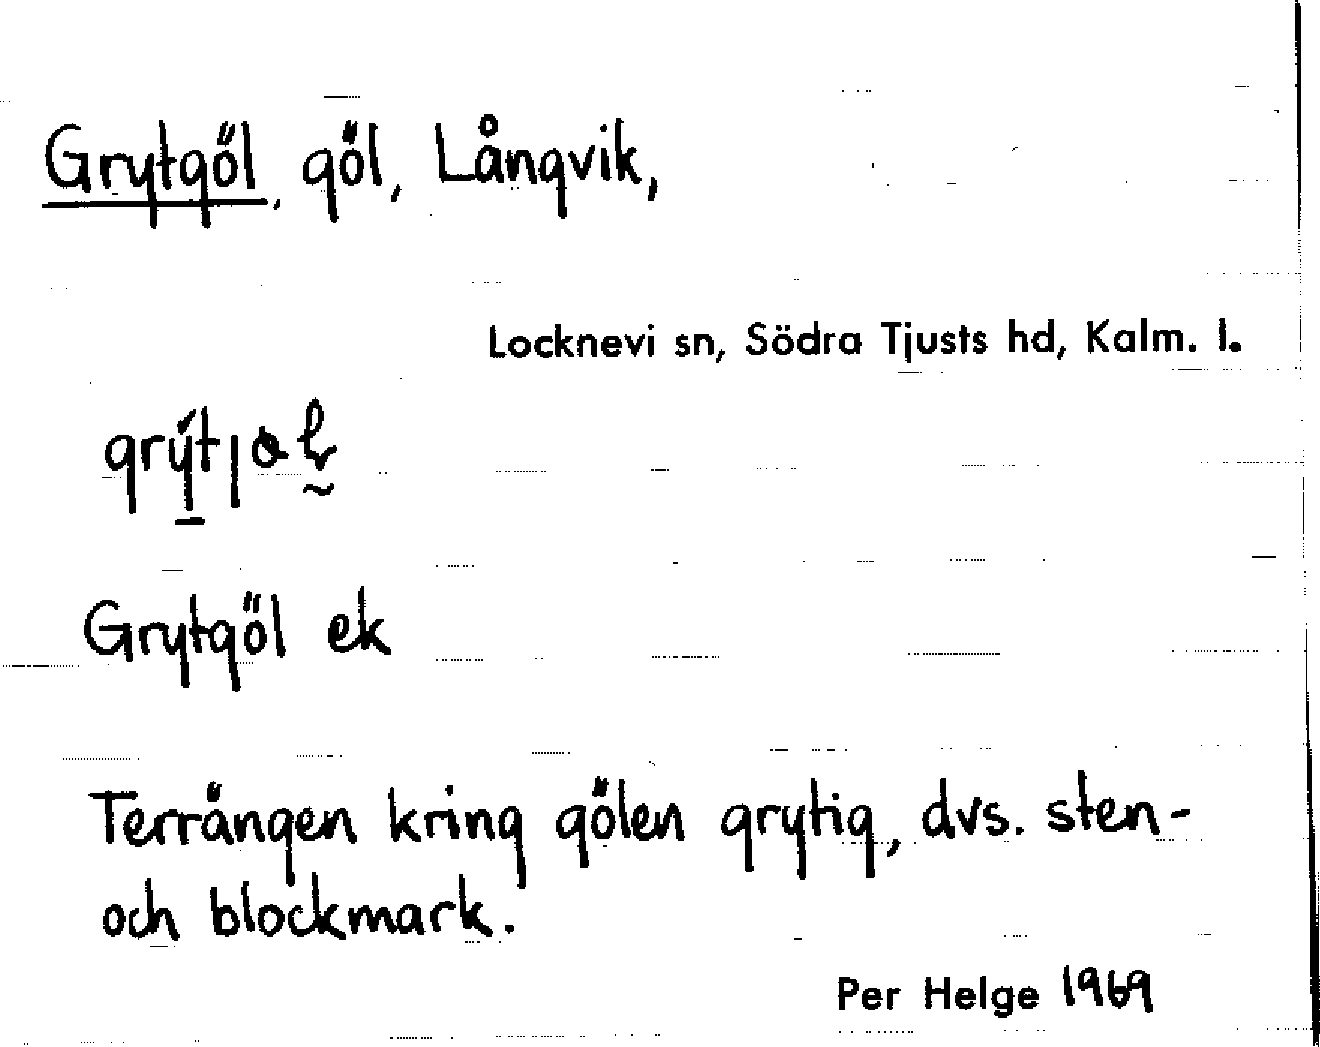 Grytgöl, göl, Långvik,
Locknevi sn, Södra Tjusts hd, Kalm. l.
Grytgöl ek
Terrängen kring gölen grytig, dvs. sten-
och blockmark.
Per Helge 1969